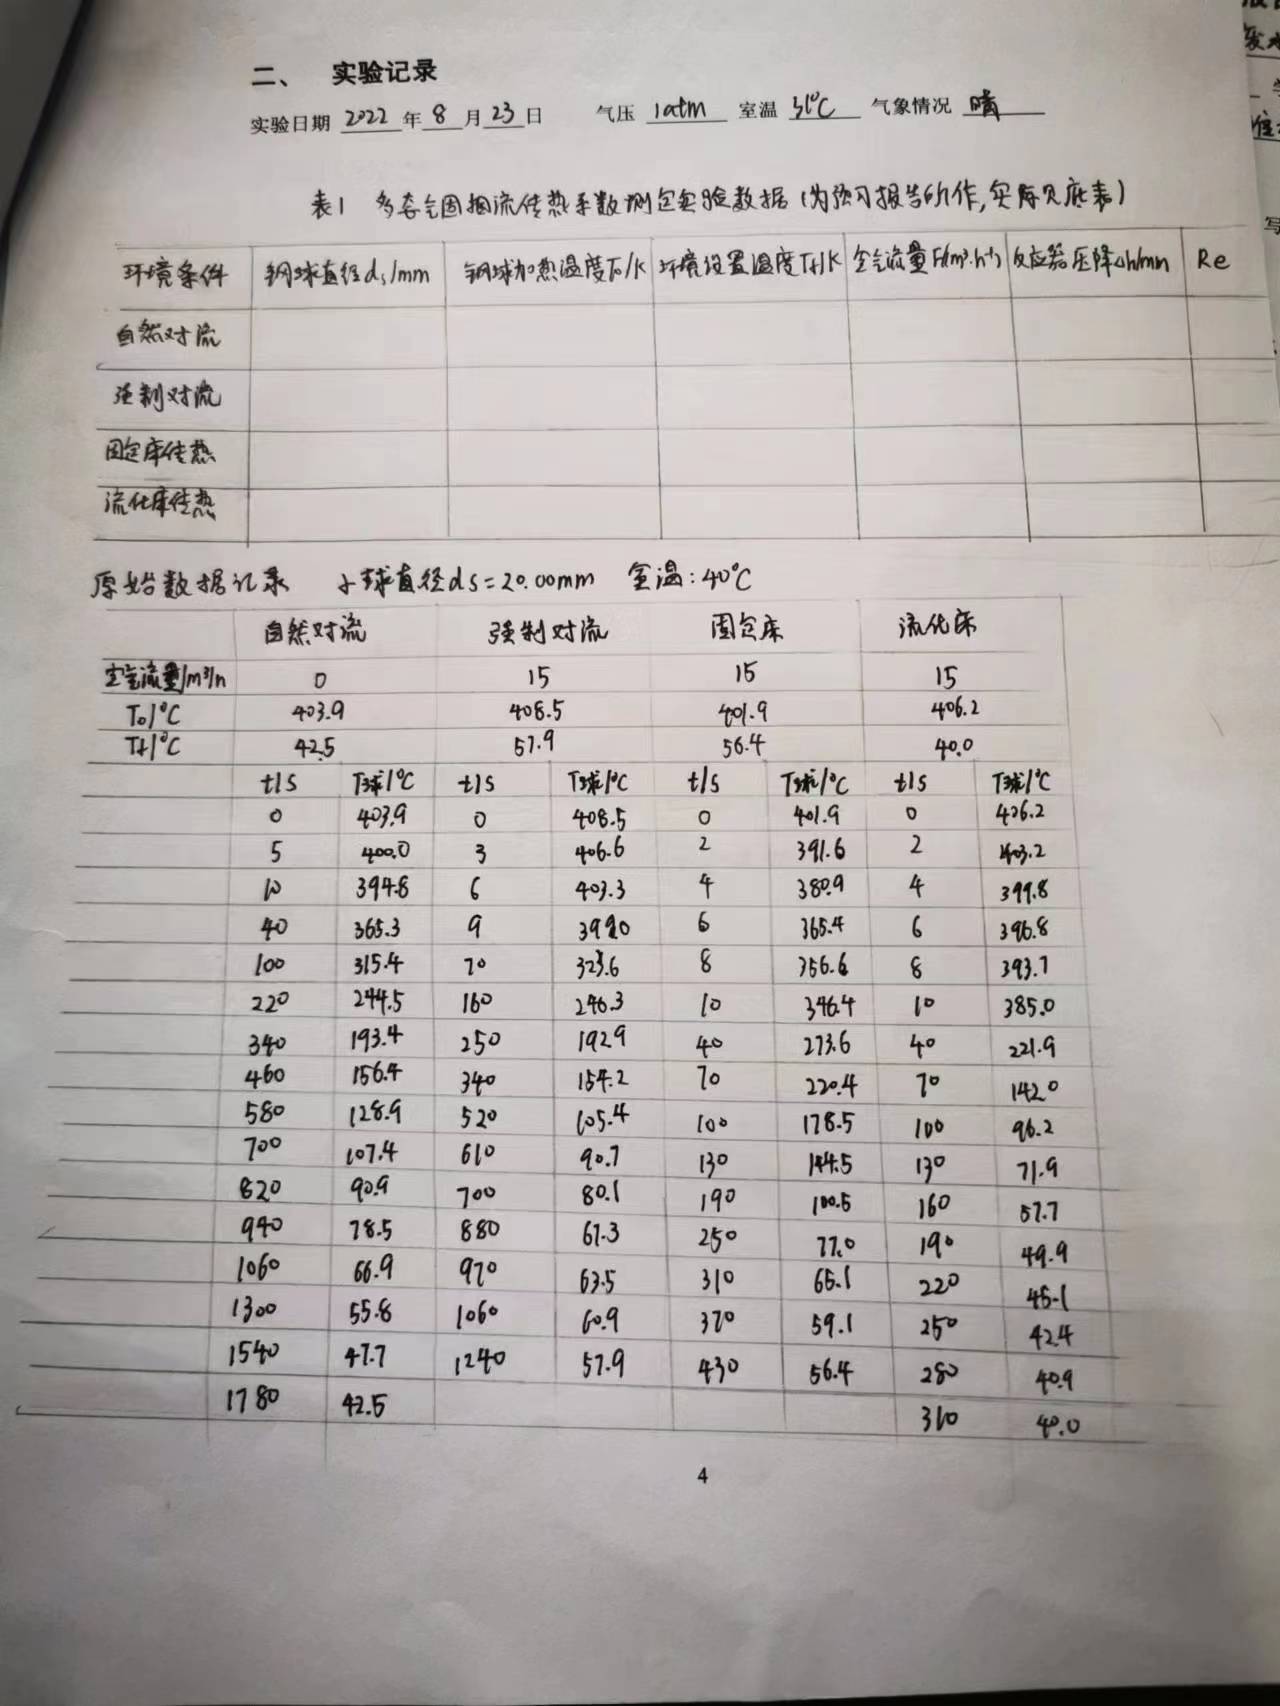 二、 实验记录
实验日期 2022 年 8 月 23 日 气压 1atm 室温 31°C 气象情况 晴
表1 多态气固相流传热系数测定实验数据(为预习报告所作,实际见底表)
环境条件 钢球直径ds/mm 钢球加热温度T0/K 环境设置温度Tf/K 空气流量F/(m³·h⁻¹) 反应器压降Δh/mm Re
自然对流
强制对流
固定床传热
流化床传热
原始数据记录 小球直径ds=20.00mm 室温:40°C
自然对流 强制对流 固定床 流化床
空气流量/m³/h 0 15 15 15
T0/°C 403.9 408.5 401.9 406.2
Tf/°C 42.5 57.9 56.4 40.0
t/s T球/°C t/s T球/°C t/s T球/°C t/s T球/°C
0 403.9 0 408.5 0 401.9 0 406.2
5 400.0 3 406.6 2 391.6 2 403.2
10 394.8 6 403.3 4 380.9 4 399.8
40 365.3 9 399.0 6 365.4 6 396.8
100 315.4 70 323.6 8 356.6 8 393.7
220 244.5 160 246.3 10 346.4 10 385.0
340 193.4 250 192.9 40 273.6 40 221.9
460 156.4 340 154.2 70 220.4 70 142.0
580 128.9 520 105.4 100 178.5 100 96.2
700 107.4 610 90.7 130 144.5 130 71.9
820 90.9 700 80.1 190 100.5 160 57.7
940 78.5 880 67.3 250 77.0 190 49.9
1060 66.9 970 63.5 310 65.1 220 45.1
1300 55.8 1060 60.9 370 59.1 250 42.4
1540 47.7 1240 57.9 430 56.4 280 40.9
1780 42.5 310 40.0
4